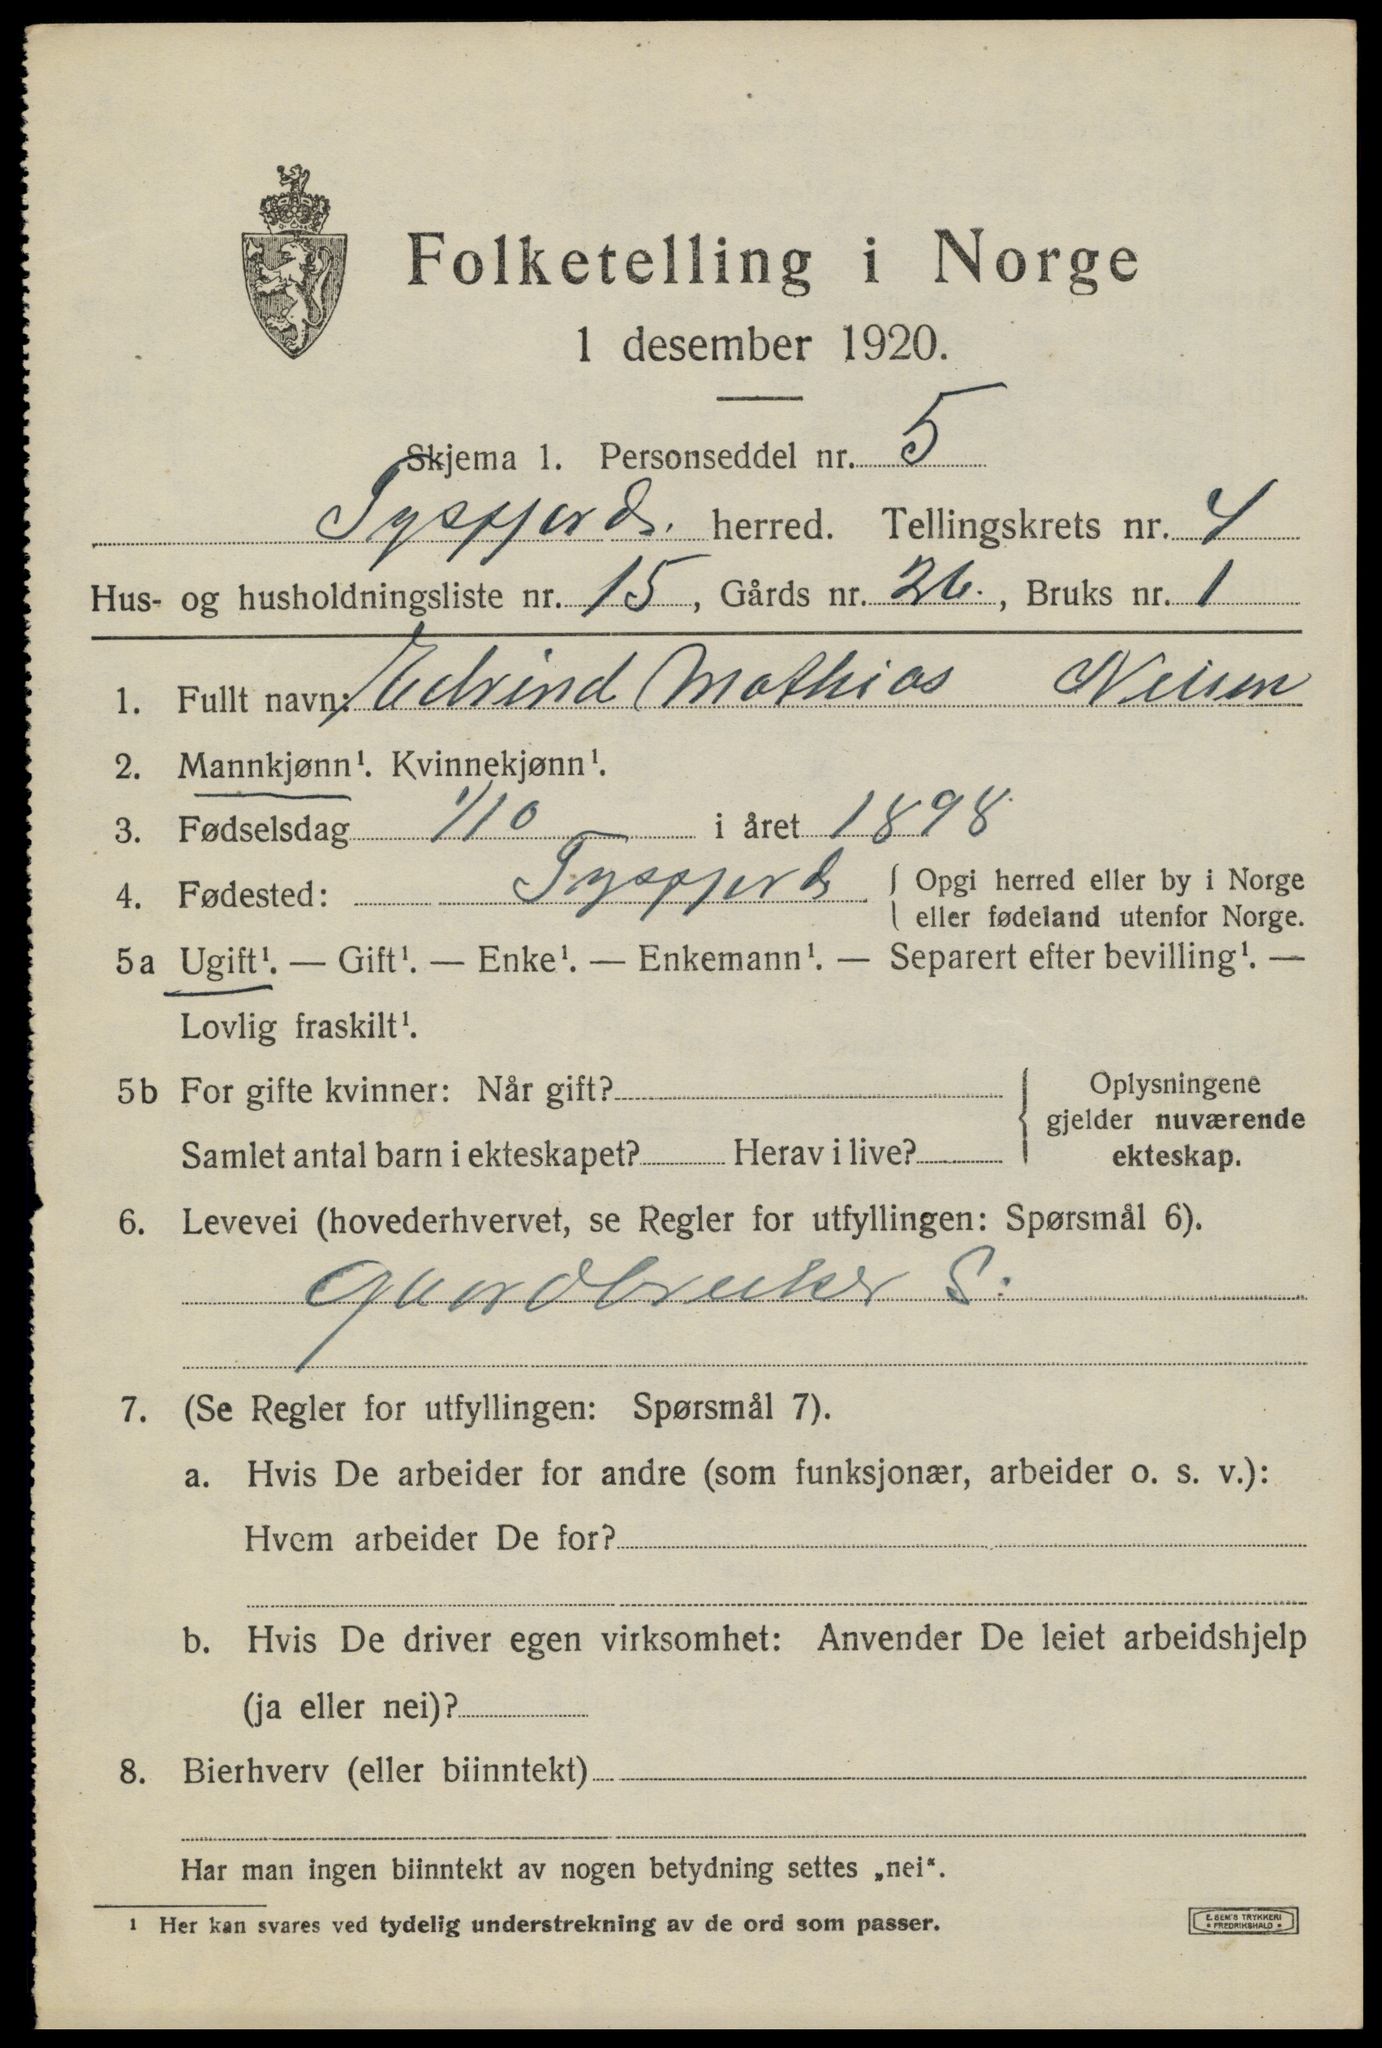 Folketelling i Norge
1 desember 1920.
Skjema 1. Personseddel nr. 5
Tysfjord herred. Tellingskrets nr. 4
Hus- og husholdningsliste nr. 15, Gårds nr. 26., Bruks nr. 1
1. Fullt navn: Edvind Mathias
2. Mannkjønn¹. Kvinnekjønn¹.
3. Fødselsdag 1/10 i året 1898
4. Fødested: Tysfjord { Opgi herred eller by i Norge
eller fødeland utenfor Norge.
5a Ugift¹. — Gift¹. — Enke¹. — Enkemann¹. — Separert efter bevilling¹. —
Lovlig fraskilt¹.
5b For gifte kvinner: Når gift? { Oplysningene
gjelder nuværende
Samlet antal barn i ekteskapet? Herav i live? ekteskap.
6. Levevei (hovederhvervet, se Regler for utfyllingen: Spørsmål 6).
Gaardbruker S.
7. (Se Regler for utfyllingen: Spørsmål 7).
a. Hvis De arbeider for andre (som funksjonær, arbeider o. s. v.):
Hvem arbeider De for?
b. Hvis De driver egen virksomhet: Anvender De leiet arbeidshjelp
(ja eller nei)?
8. Bierhverv (eller biinntekt)
Har man ingen biinntekt av nogen betydning settes „nei“.
¹ Her kan svares ved tydelig understrekning av de ord som passer.
E. SEM'S TRYKKERI
FREDRIKSHALD